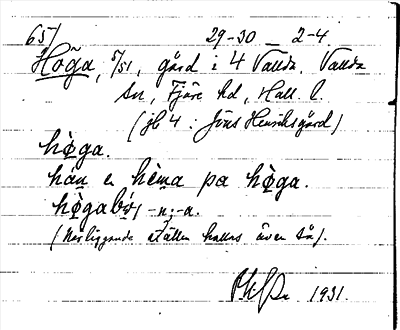 65/ 29-30 — 2-4
Höga, 5/51, gård i 4 Vallda, Vallda
sn, Fjäre hd, Hall. l.
(jb 4 : Jöns Henriksgård)
hø̀ga.
hàn e hèma pa hø̀ga.
hø̀gabø, -n; -a.
(Närliggande ställen kallas även så).
1931.